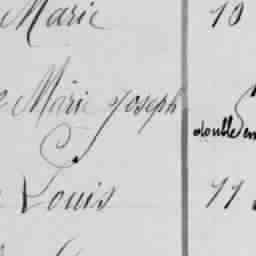 Marie 10
Marie Joseph
double em
Louis 11